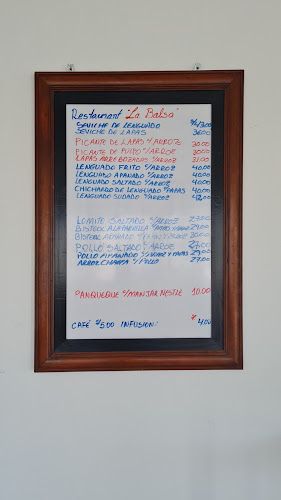 Restaurant "La Balsa"
SEVICHE DE LENGUADO
SEVICHE DE LAPAS 36.00
PICANTE DE LAPAS S/ARROZ 30.00
PICANTE DE PULPO S/ARROZ 30.00
LAPAS ARREBOZADAS S/ARROZ 31.00
LENGUADO FRITO S/ARROZ 40.00
LENGUADO APANADO S/ARROZ 40.00
LENGUADO SALTADO S/ARROZ 40.00
CHICHARRO DE LENGUADO S/PAPAS 40.00
LENGUADO SUDADO S/ARROZ 42.00
LOMITO SALTADO S/ARROZ 27.00
BISTECK A LA PARRILLA
BISTECK APANADO
POLLO SALTADO S/ARROZ 27.00
POLLO APANADO S/ARROZ Y PAPAS 27.00
ARROZ CHAUFA S/POLLO 27.00
PANQUEQUE S/MANJAR NESTLE 10.00
CAFÉ S/5.00 INFUSION: 4.00